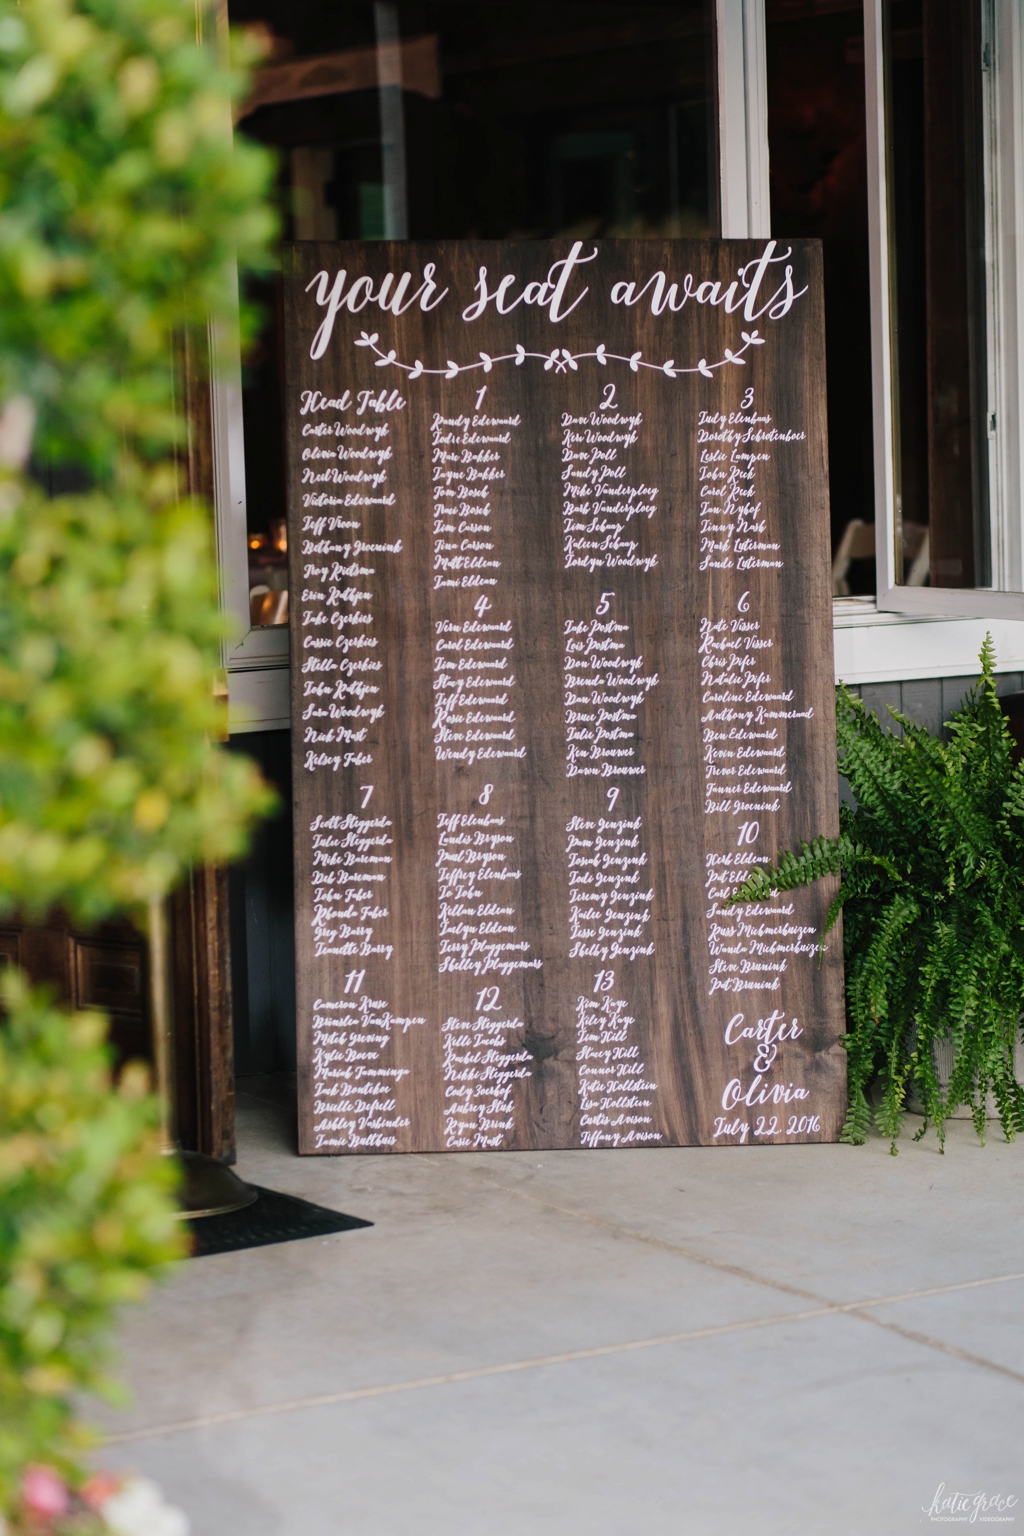 your seat awaits
Head Table
Carter Woodwyk
Olivia Woodwyk
Neil Woodwyk
Victoria Edewaard
Jeff Vroon
Bethany Groenink
Troy Rietsma
Erin Rathjen
Jake Czerkies
Cassie Czerkies
Stella Czerkies
John Rathjen
Sara Woodwyk
Nick Mast
Kelsey Faber
1
Randy Edewaard
Jodie Edewaard
Marc Bakker
Jayne Bakker
Tom Bosch
Traci Bosch
Jim Carson
Tina Carson
Matt Eldean
Jami Eldean
2
Dave Woodwyk
Keri Woodwyk
Dave Poll
Sandy Poll
Mike Vanderploeg
Barb Vanderploeg
Jim Schaap
Kaleen Schaap
Jordyn Woodwyk
3
Judy Elenbaas
Dorothy Schrotenboer
Leslie Lampen
John Reek
Carol Reek
Ian Nyhof
Jenny Nash
Mark Laterman
Sande Laterman
4
Vern Edewaard
Carol Edewaard
Jim Edewaard
Stacy Edewaard
Jeff Edewaard
Rosie Edewaard
Steve Edewaard
Wendy Edewaard
5
Jake Postma
Lois Postma
Don Woodwyk
Brenda Woodwyk
Dan Woodwyk
Bruce Postma
Julie Postma
Ken Brouwer
Dawn Brouwer
6
Nate Visser
Rachael Visser
Chris Pifer
Natalie Pifer
Caroline Edewaard
Anthony Kammeraad
Ben Edewaard
Kevin Edewaard
Trevor Edewaard
Tanner Edewaard
Bill Groenink
7
Scott Steggerda
Julie Steggerda
Mike Bareman
Deb Bareman
John Faber
Rhonda Faber
Greg Barry
Jeanette Barry
8
Jeff Elenbaas
Landis Bryson
Paul Bryson
Jeffrey Elenbaas
Jo John
Killan Eldean
Jaelyn Eldean
Jerry Plaggemars
Shelley Plaggemars
9
Steve Genzink
Pam Genzink
Josiah Genzink
Jodi Genzink
Jeremy Genzink
Kailee Genzink
Jesse Genzink
Shelby Genzink
10
Herb Eldean
Pat
Sandy Edewaard
Russ Michmerhuizen
Wanda Michmerhuizen
Steve Brunink
Pat Brunink
11
Cameron Kruse
Brinslea VanKampen
Mitch Greving
Kylie Boeve
Mariah Tamminga
Zack Bontekoe
Brielle Defrell
Ashley Vasbinder
Jamie Balthuis
12
Steve Steggerda
Kelli Jacobs
Rachel Steggerda
Nikki Steggerda
Cody Zoerhof
Aubrey Stuk
Ryan Brink
Casie Mast
13
Kim Kaye
Kiley Kaye
Jim Hill
Stacey Hill
Connor Hill
Katie Hallstein
Lisa Hallstein
Curtis Avison
Tiffany Avison
Carter
&
Olivia
July 22. 2016
katie grace
PHOTOGRAPHY VIDEOGRAPHY